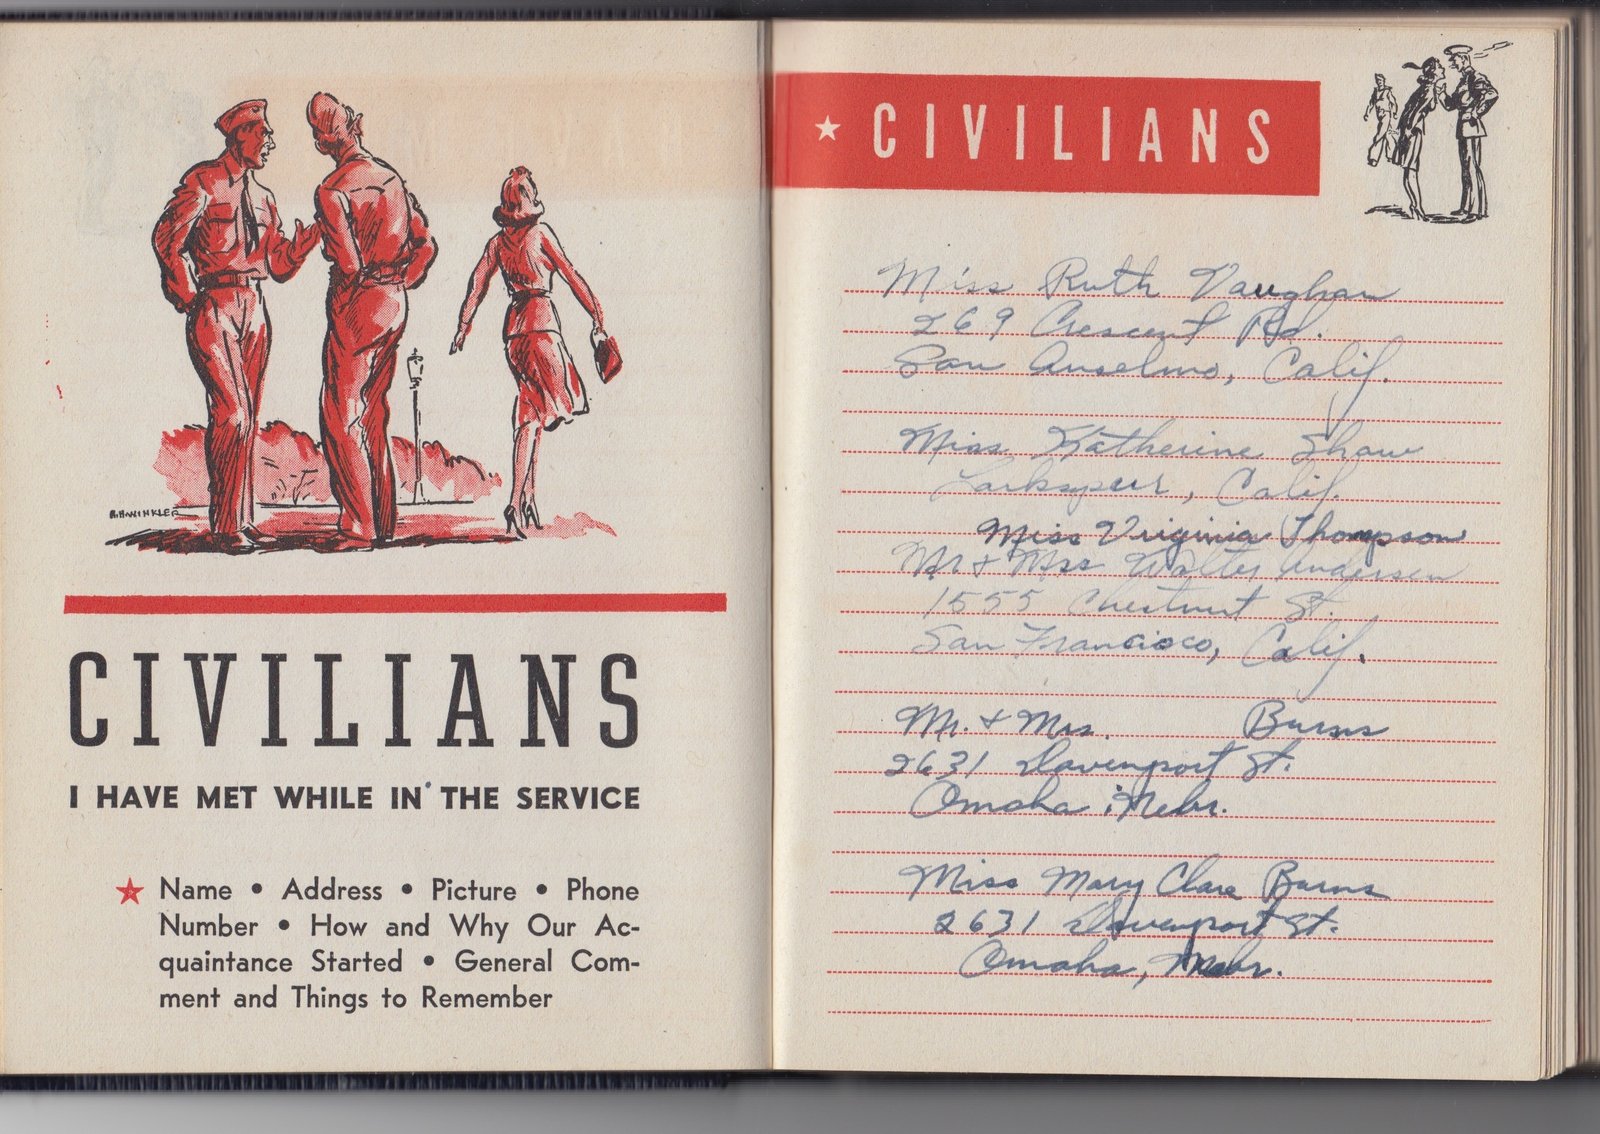 R.H.WINKLER
CIVILIANS
I HAVE MET WHILE IN THE SERVICE
★ Name • Address • Picture • Phone
Number • How and Why Our Ac-
quaintance Started • General Com-
ment and Things to Remember
★ CIVILIANS
Miss Ruth Vaughan
269 Crescent Rd.
San Anselmo, Calif.
Miss Katherine Shaw
Larkspur, Calif.
Miss Virginia Thompson
Mr & Mrs Walter Andersen
1555 Chestnut St.
San Francisco, Calif.
Mr. & Mrs. Burns
2631 Davenport St.
Omaha, Nebr.
Miss Mary Clare Burns
2631 Davenport St.
Omaha, Nebr.